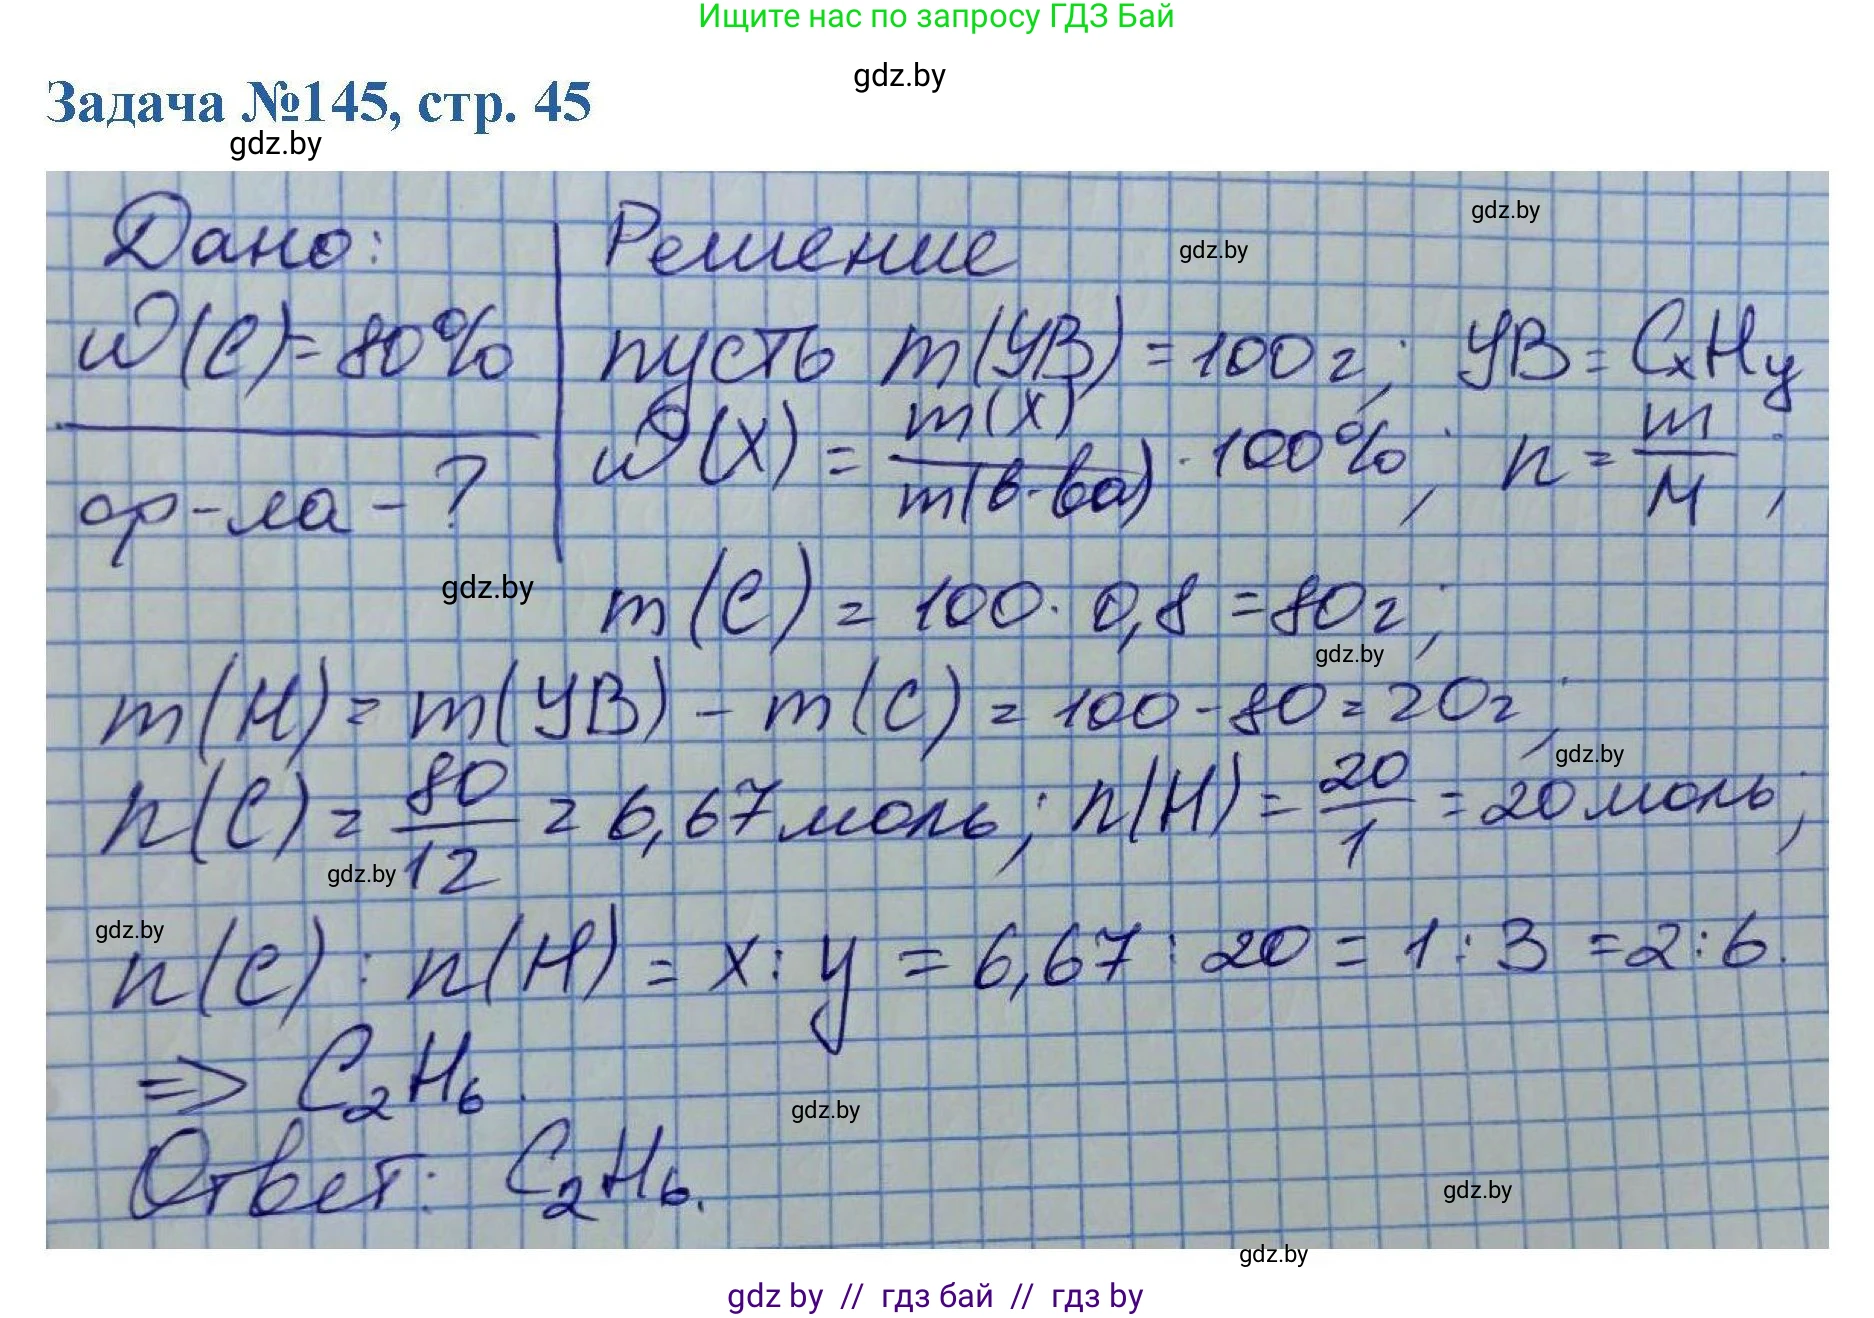 Ищите нас по запросу ГДЗ Бай
gdz.by
Задача №145, стр. 45
gdz.by
Дано:
Решение
gdz.by
gdz.by
w(C)=80%
пусть m(УВ) = 100г; УВ = CxHy
w(X) = m(X)/m(в-ва) · 100%; n = m/M;
ф-ла - ?
gdz.by
m(C) = 100 · 0,8 = 80г;
gdz.by
m(H) = m(УВ) - m(C) = 100 - 80 = 20г;
gdz.by
n(C) = 80/12 = 6,67 моль; n(H) = 20/1 = 20 моль;
gdz.by
gdz.by
n(C) : n(H) = x : y = 6,67 : 20 = 1 : 3 = 2 : 6.
=> C₂H₆.
gdz.by
Ответ: C₂H₆.
gdz.by
gdz.by
gdz by // гдз бай // гдз by